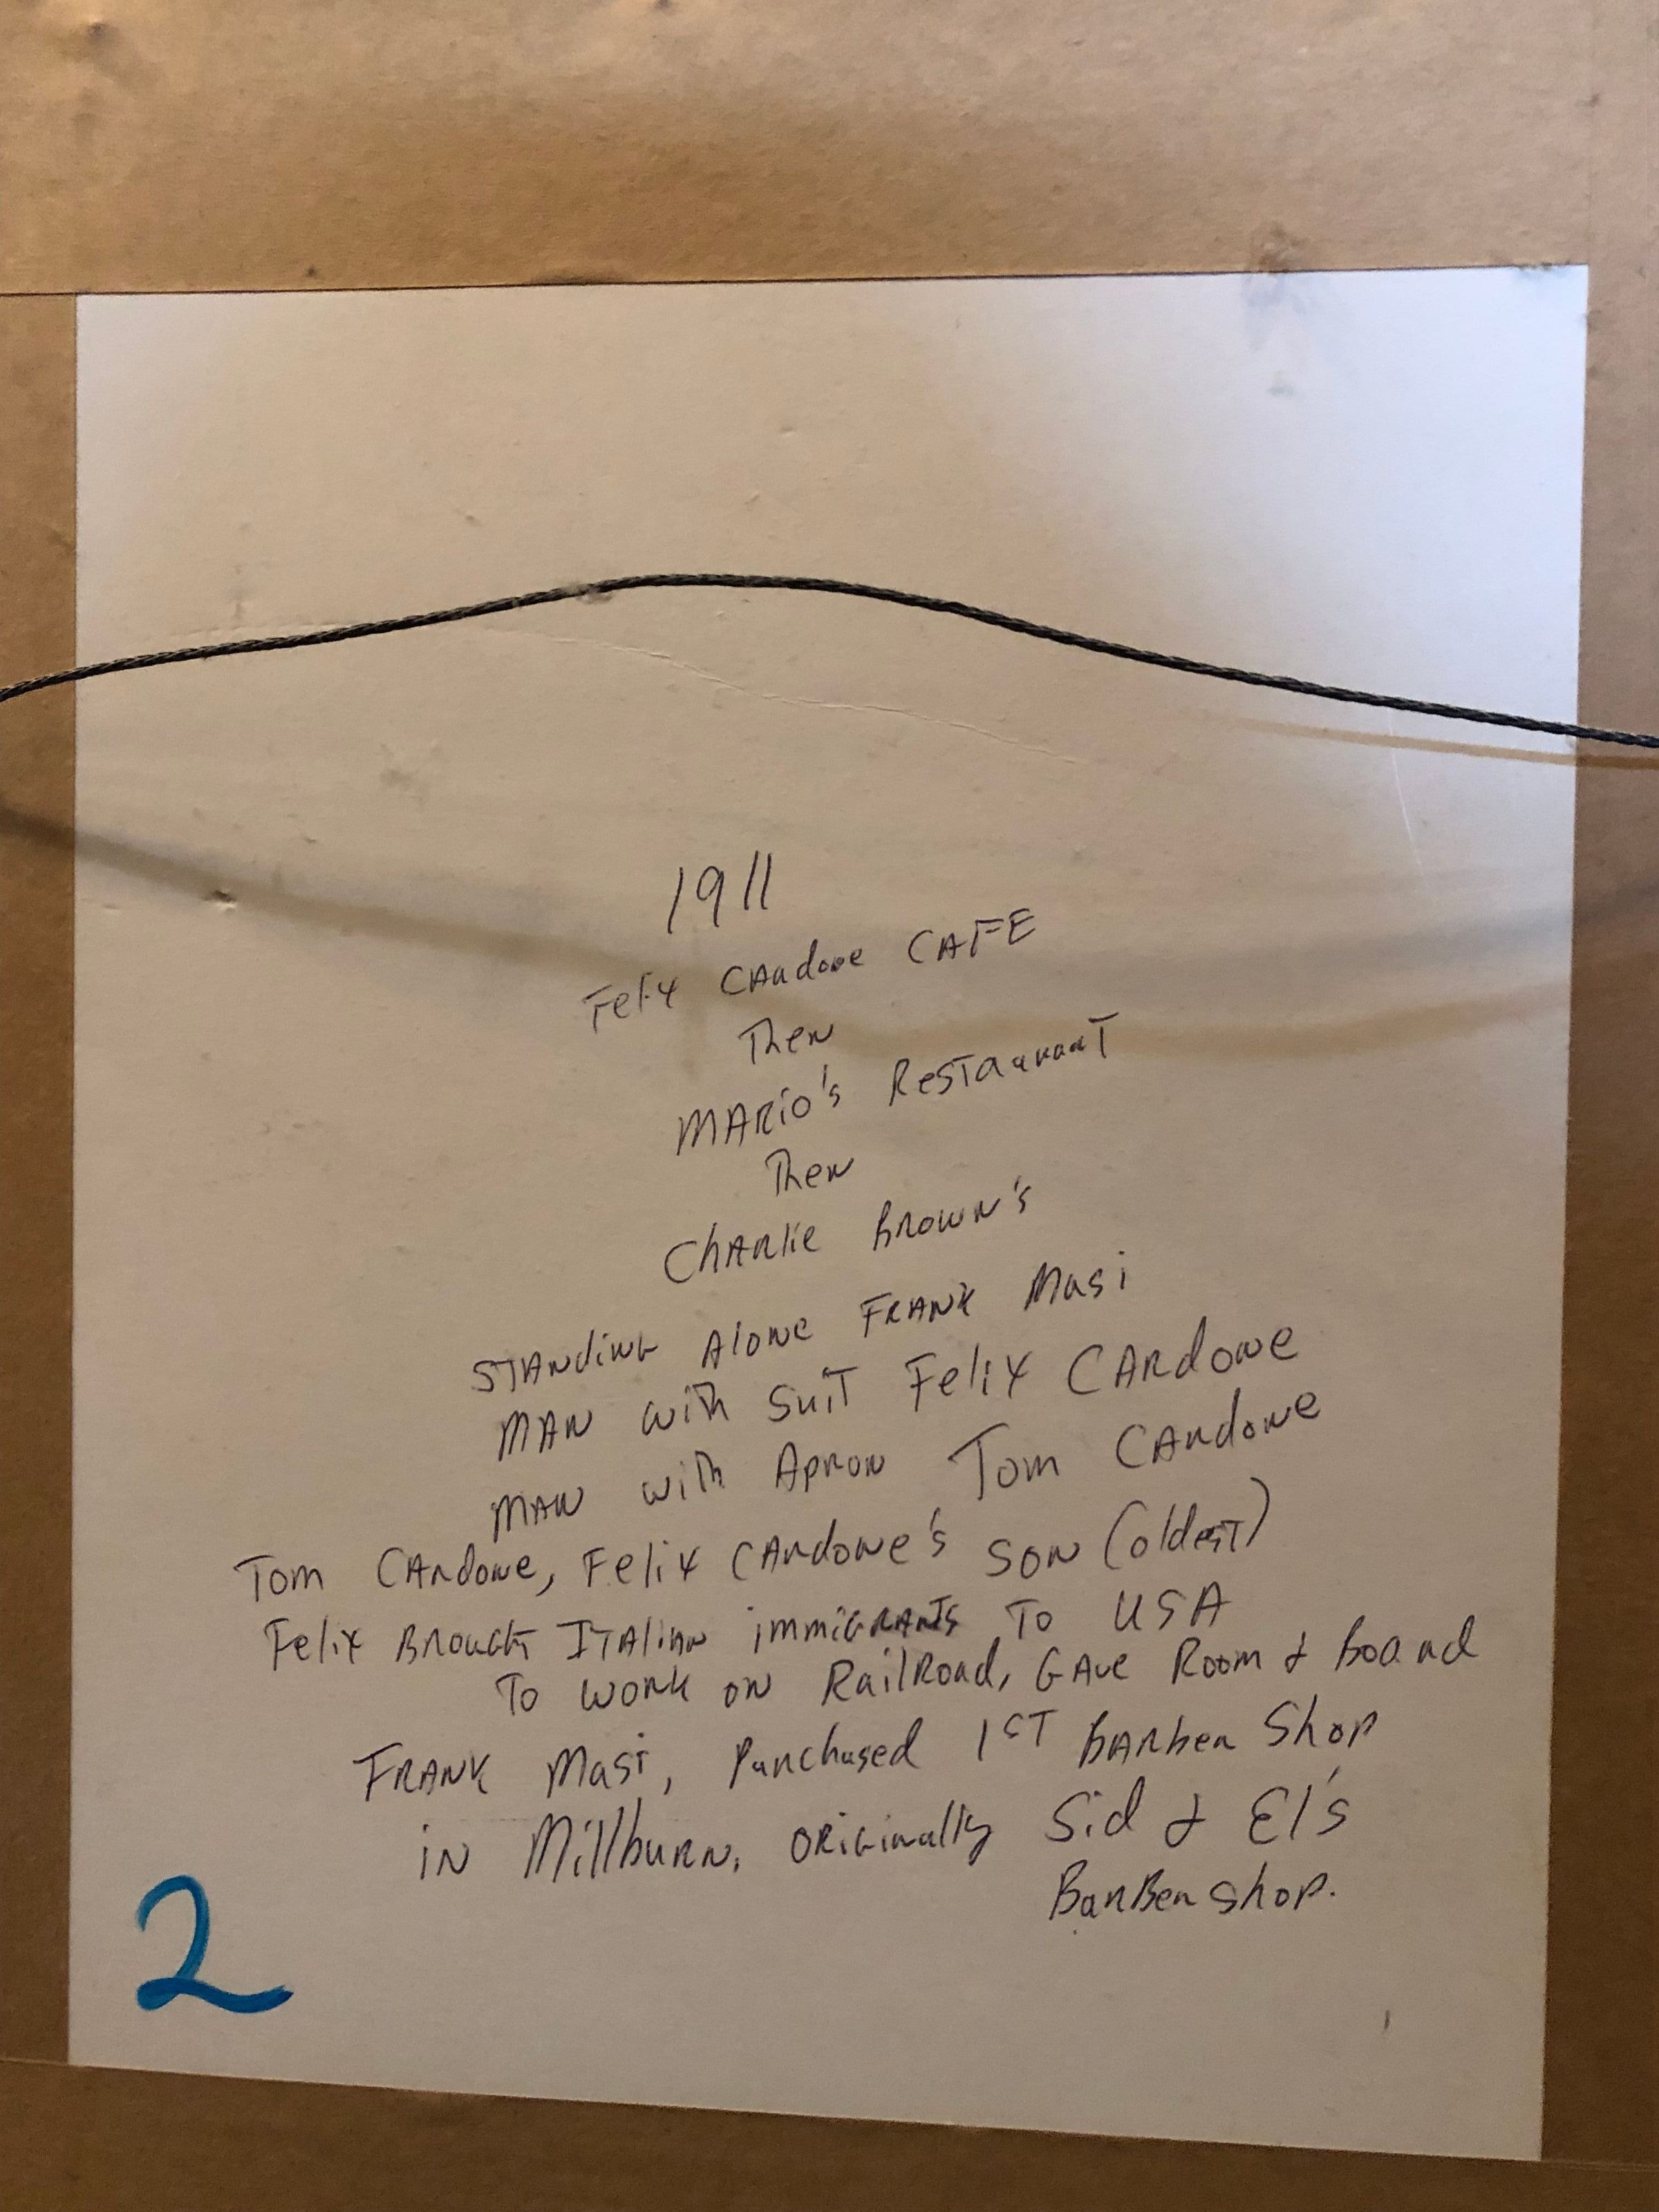 1911
Felix Cardone CAFE
Then
MARio's Restaurant
Then
Charlie Brown's
Standing Alone Frank Masi
Man with Suit Felix Cardone
Man with Apron Tom Cardone
Tom Cardone, Felix Cardone's son (oldest)
Felix Brought Italian immigrants To USA
To work on Railroad, Gave Room & Board
Frank Masi, Purchased 1ST Barber Shop
in Millburn, originally Sid & El's
BarBer shop.
2